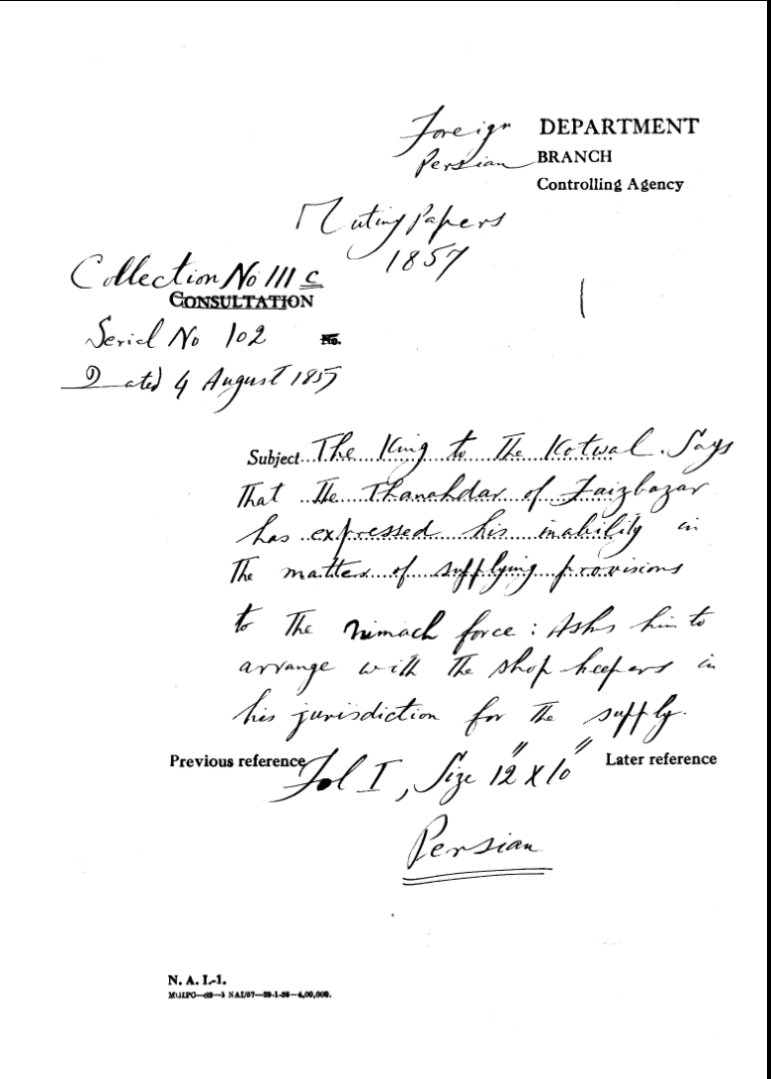 Foreign DEPARTMENT
Persian BRANCH
Controlling Agency
Mutiny Papers
1857
Collection No III C
CONSULTATION
Serial No 102 No.
Dated 4 August 1857
Subject The King to the Kotwal. Says
that the Thanahdar of Faizbazar
has expressed his inability in
the matter of supplying provisions
to the Nimach force : Asks him to
arrange with the shop keepers in
his jurisdiction for the supply.
Previous reference Later reference
Fol I, Size 12" X 10"
Persian
N. A. I.-1.